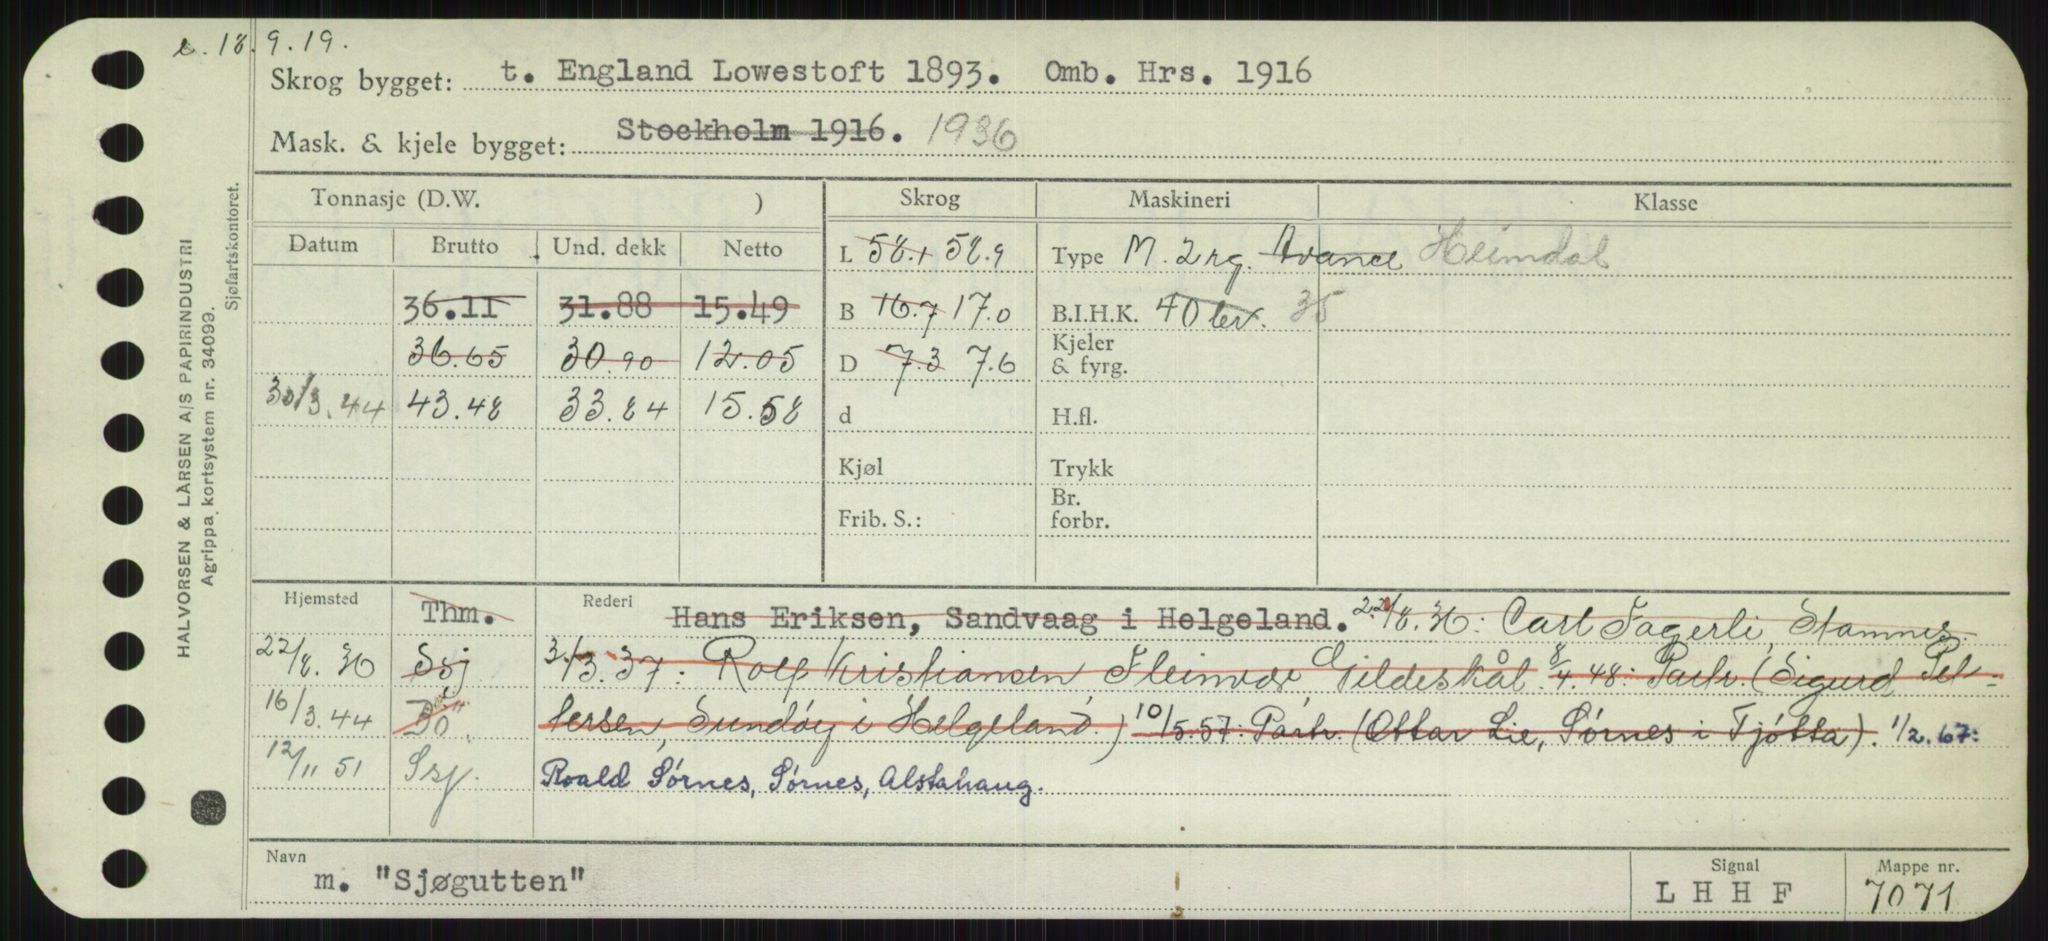 e. 18.9.19.
Skrog bygget: t. England Lowestoft 1893. Omb. Hrs. 1916
Mask. & kjele bygget: Stockholm 1916. 1936
HALVORSEN & LARSEN A/S PAPIRINDUSTRI
Agrippa kortsystem nr. 34099.
Sjøfartskontoret.
Tonnasje (D.W. ) Skrog Maskineri Klasse
Datum Brutto Und. dekk Netto L 58.1 58.9 Type M. 2 rg. Avance Heimdal
36.11 31.88 15.49 B 16.7 17.0 B.I.H.K. 40 ter. 35
36.65 30.90 12.05 D 7.3 7.6 Kjeler & fyrg.
30/3.44 43.48 33.84 15.58 d H.fl.
Kjøl Trykk
Frib. S.: Br. forbr.
Hjemsted Thm. Rederi Hans Eriksen, Sandvaag i Helgeland. 22/8.36: Carl Fagerli, Stamnes.
22/8.36 Ssj 3/3.37: Rolf Kristiansen Fleinvær Gildeskål. 8/4.48: Partr. (Sigurd Pet-
16/3.44 Bö. tersen, Sundöy i Helgeland.) 10/5.57: Partr. (Ottar Lie, Sörnes i Tjötta). 1/2.67:
12/11 51 Ssj. Roald Sörnes, Sörnes, Alstahaug.
Navn m. "Sjøgutten" Signal L H H F Mappe nr. 7071